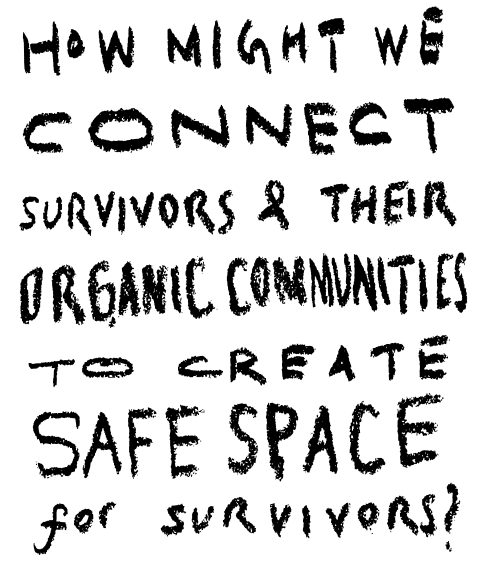 HOW MIGHT WE
CONNECT
SURVIVORS & THEIR
ORGANIC COMMUNITIES
TO CREATE
SAFE SPACE
for SURVIVORS?